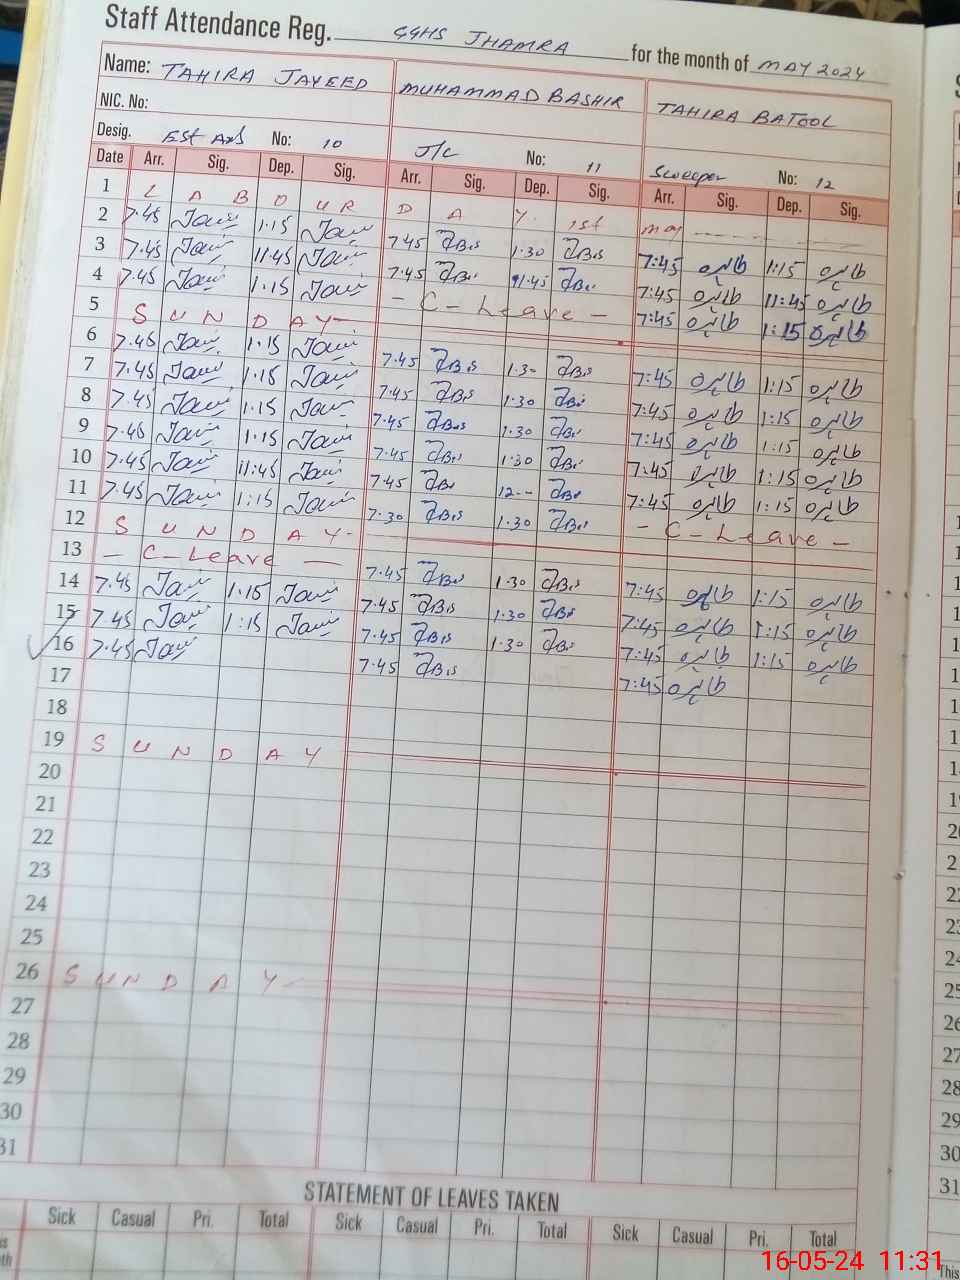 Staff Attendance Reg. GGHS JHAMRA for the month of MAY 2024
Name: TAHIRA JAVEED MUHAMMAD BASHIR TAHIRA BATOOL
NIC. No:
Desig. No: 10 J/C No: 11 Sweeper No: 12
Date Arr. Sig. Dep. Sig. Arr. Sig. Dep. Sig. Arr. Sig. Dep. Sig.
1 LABOUR DAY. 1st may
2 7.45 1.15 7.45 1.30 7:45 طاہرہ 1:15 طاہرہ
3 7.45 11.45 7.45 11.45 7:45 طاہرہ 11:45 طاہرہ
4 7.45 1.15 - C - Leave - 7:45 طاہرہ 1:15 طاہرہ
5 SUNDAY
6 7.45 1.15 7.45 1.30 7:45 طاہرہ 1:15 طاہرہ
7 7.45 1.15 7.45 1.30 7:45 طاہرہ 1:15 طاہرہ
8 7.45 1.15 7.45 1.30 7:45 طاہرہ 1:15 طاہرہ
9 7.45 1.15 7.45 1.30 7:45 طاہرہ 1:15 طاہرہ
10 7.45 11:45 7.45 12-- 7:45 طاہرہ 1:15 طاہرہ
11 7.45 1:15 7.30 1.30 - C - Leave -
12 SUNDAY
13 - C - Leave - 7.45 1.30 7:45 طاہرہ 1:15 طاہرہ
14 7.45 1.15 7.45 1.30 7:45 طاہرہ 1:15 طاہرہ
15 7.45 1:15 7.45 1.30 7:45 طاہرہ 1:15 طاہرہ
16 7.45 7.45 7:45 طاہرہ
17
18
19 SUNDAY
20
21
22
23
24
25
26 SUNDAY
27
28
29
30
31
STATEMENT OF LEAVES TAKEN
Sick Casual Pri. Total Sick Casual Pri. Total Sick Casual Pri. Total
16-05-24 11:31
This